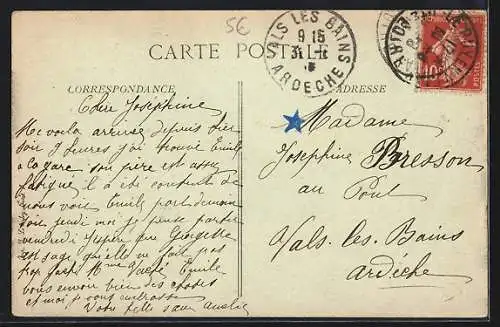 5€
CARTE POSTALE
VALS LES BAINS
9 15
ARDECHE
10
CORRESPONDANCE
ADRESSE
Chère Josephine
Me voila arrivée depuis hier
soir 9 heures j'ai trouvé Emile
a la gare son père est assez
fatigué il a été content de
nous voir Emile part demain
soir jeudi moi je pense partir
vendredi j'espère que Georgette
est sage qu'elle ne fait pas
trop Mme Emile
vous envoie bien des choses
et moi p vous embrasse
Votre belle sœur Amélie
Madame
Josephine Bresson
au Pont
Vals-les-Bains
Ardèche